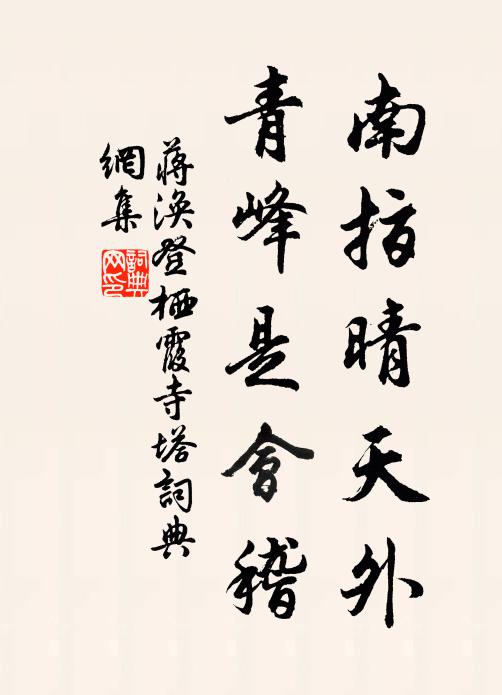 南指晴天外
青峰是會稽
蔣渙登栖霞寺塔詞典
網集
詞典
网印